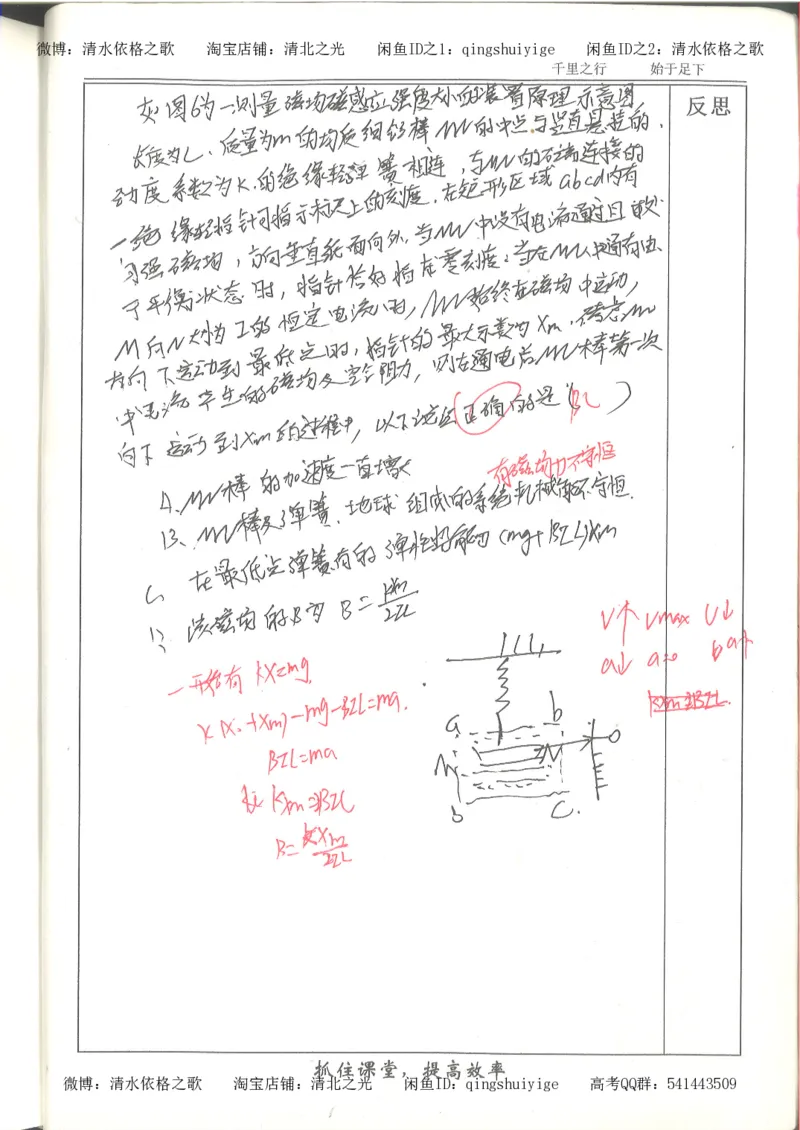 微博：清水依格之歌 淘宝店铺：清北之光 闲鱼ID之1：qingshuiyige 闲鱼ID之2：清水依格之歌
千里之行 始于足下
反思
如图6为一测量磁场磁感应强度大小的装置原理示意图
长度为L、质量为m的均质细铝棒MN的中点与竖直悬挂的、
劲度系数为K的绝缘轻弹簧相连，与MN的右端连接的
一绝缘轻指针可指示标尺上的刻度，在矩形区域abcd内有
匀强磁场，方向垂直纸面向外，当MN中没有电流通过且
于平衡状态时，指针恰好指在零刻度；当在MN中通有由
M向N大小为I的恒定电流时，MN始终在磁场中运动，
向下运动到最低点时，指针的最大示数为Xm，不考虑MN
中电流产生的磁场及空气阻力，则在通电后MN棒第一次
向下运动到Xm的过程中，以下说法正确的是（BC）
A、MN棒的加速度一直增大
有磁场力不守恒
B、MN棒及弹簧、地球组成的系统机械能不守恒.
C 在最低点弹簧有的弹性势能为(mg+BIL)Xm
D、该磁场的B为 B=kxm/2IL
V↑ Vmax V↓
a↓ a=0 a↑
一开始有 kx=mg
k(x.+xm)-mg-BIL=ma.
BIL=ma
kxm=2BIL
B=kxm/2IL
a b
O
M N
b C.
抓住课堂，提高效率
微博：清水依格之歌 淘宝店铺：清北之光 闲鱼ID：qingshuiyige 高考QQ群：541443509